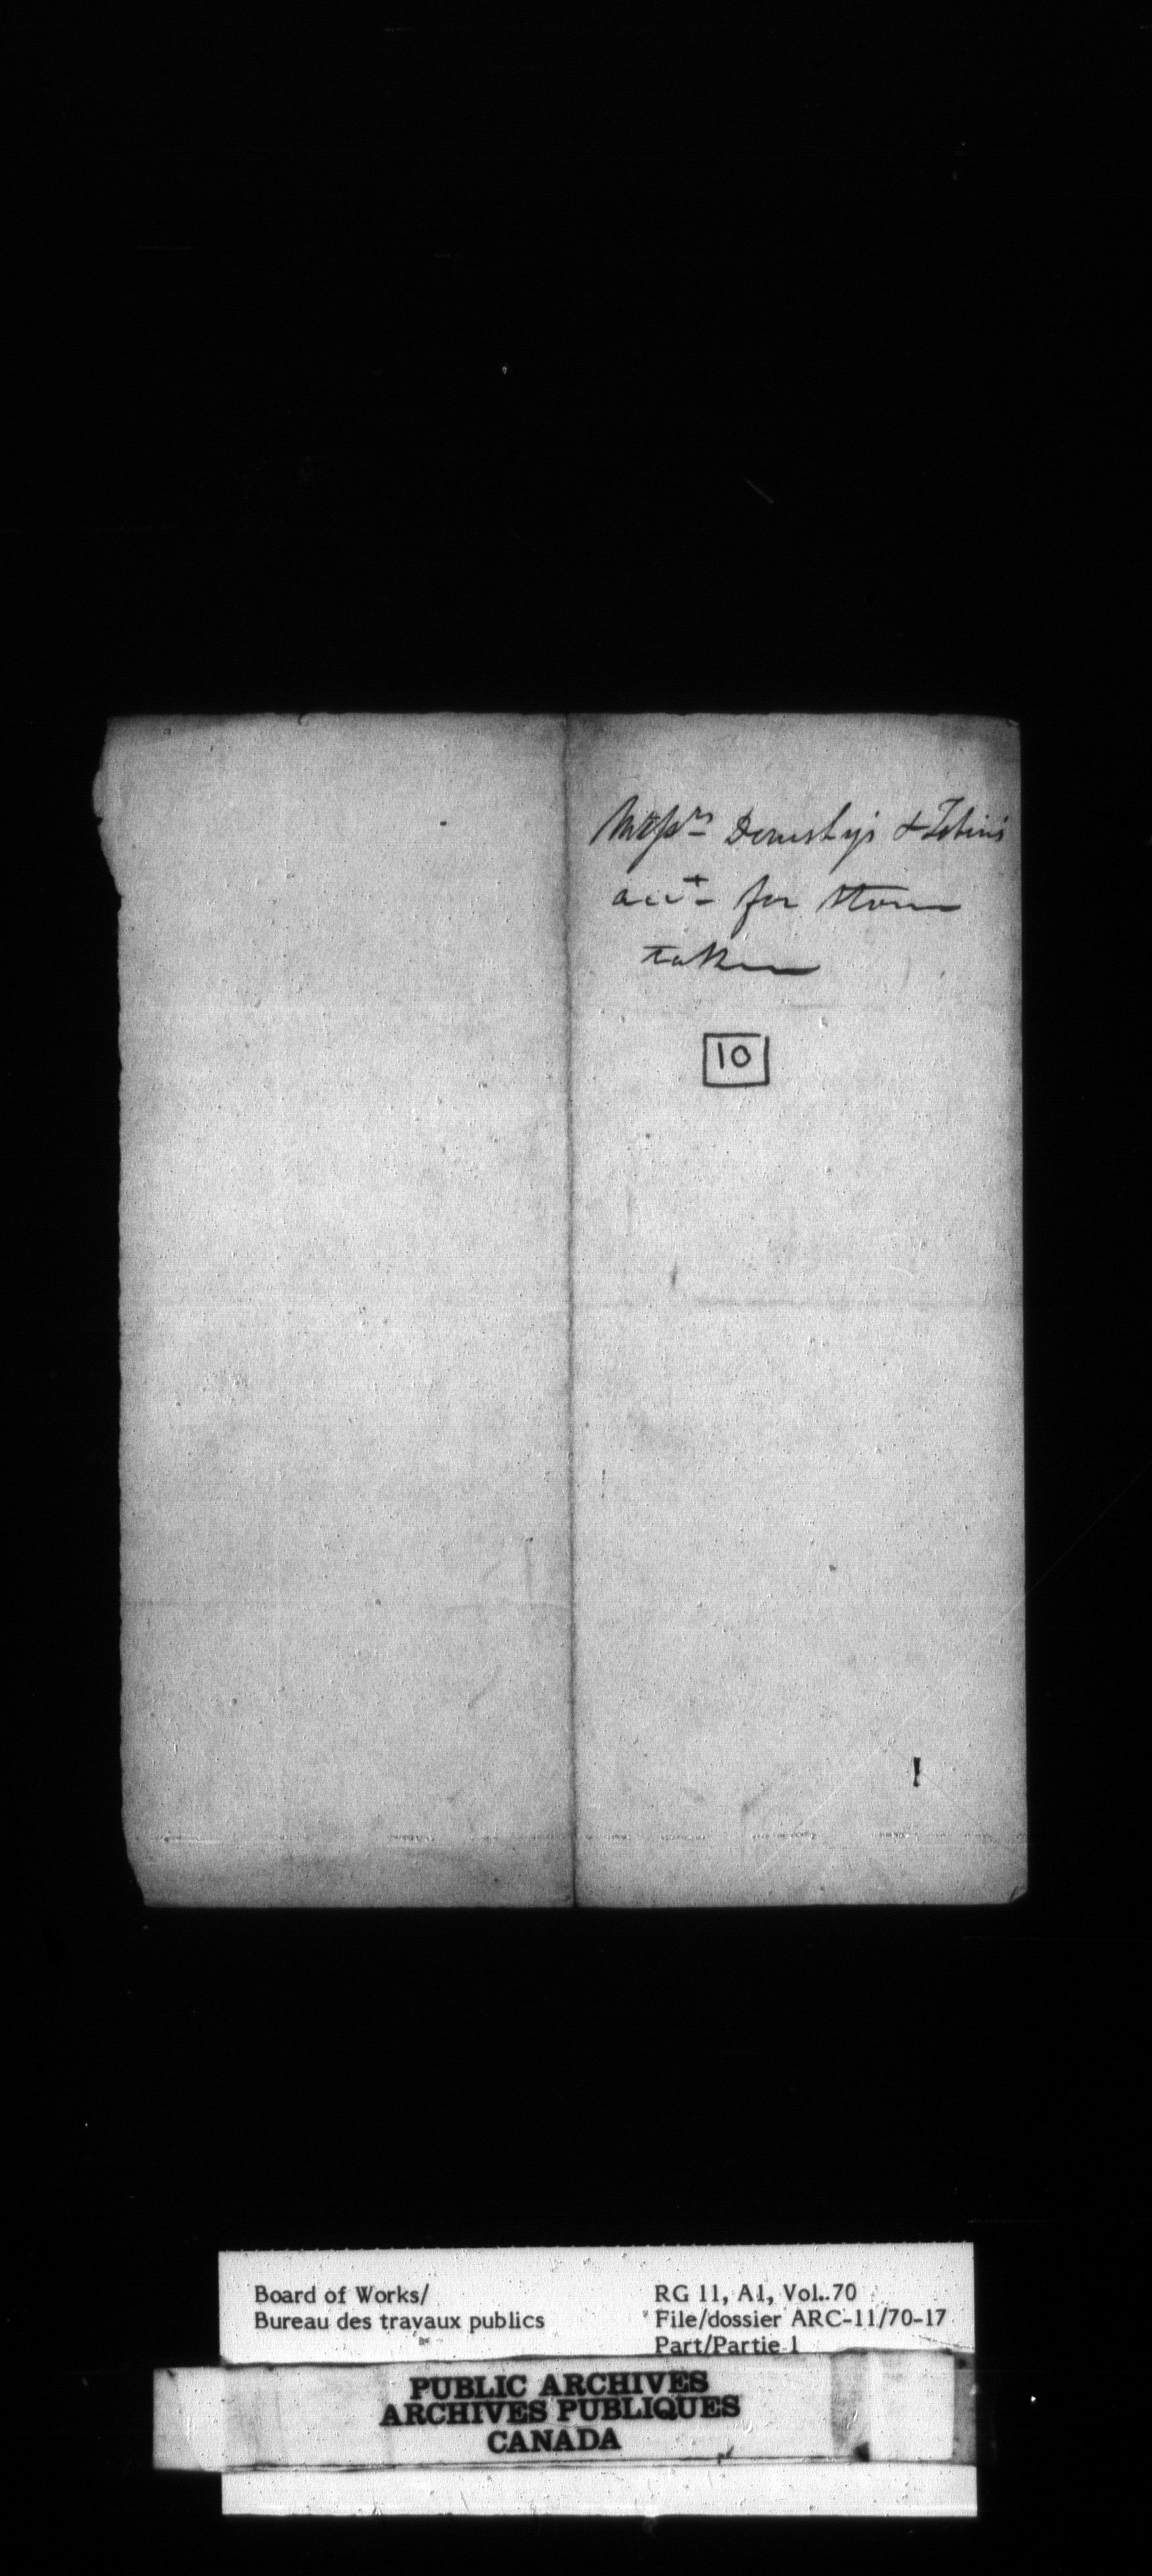 Messrs & Tobin's
acct for Stone
taken
10
Board of Works/
Bureau des travaux publics
RG 11, A1, Vol. 70
File/dossier ARC-11/70-17
Part/Partie 1
PUBLIC ARCHIVES
ARCHIVES PUBLIQUES
CANADA